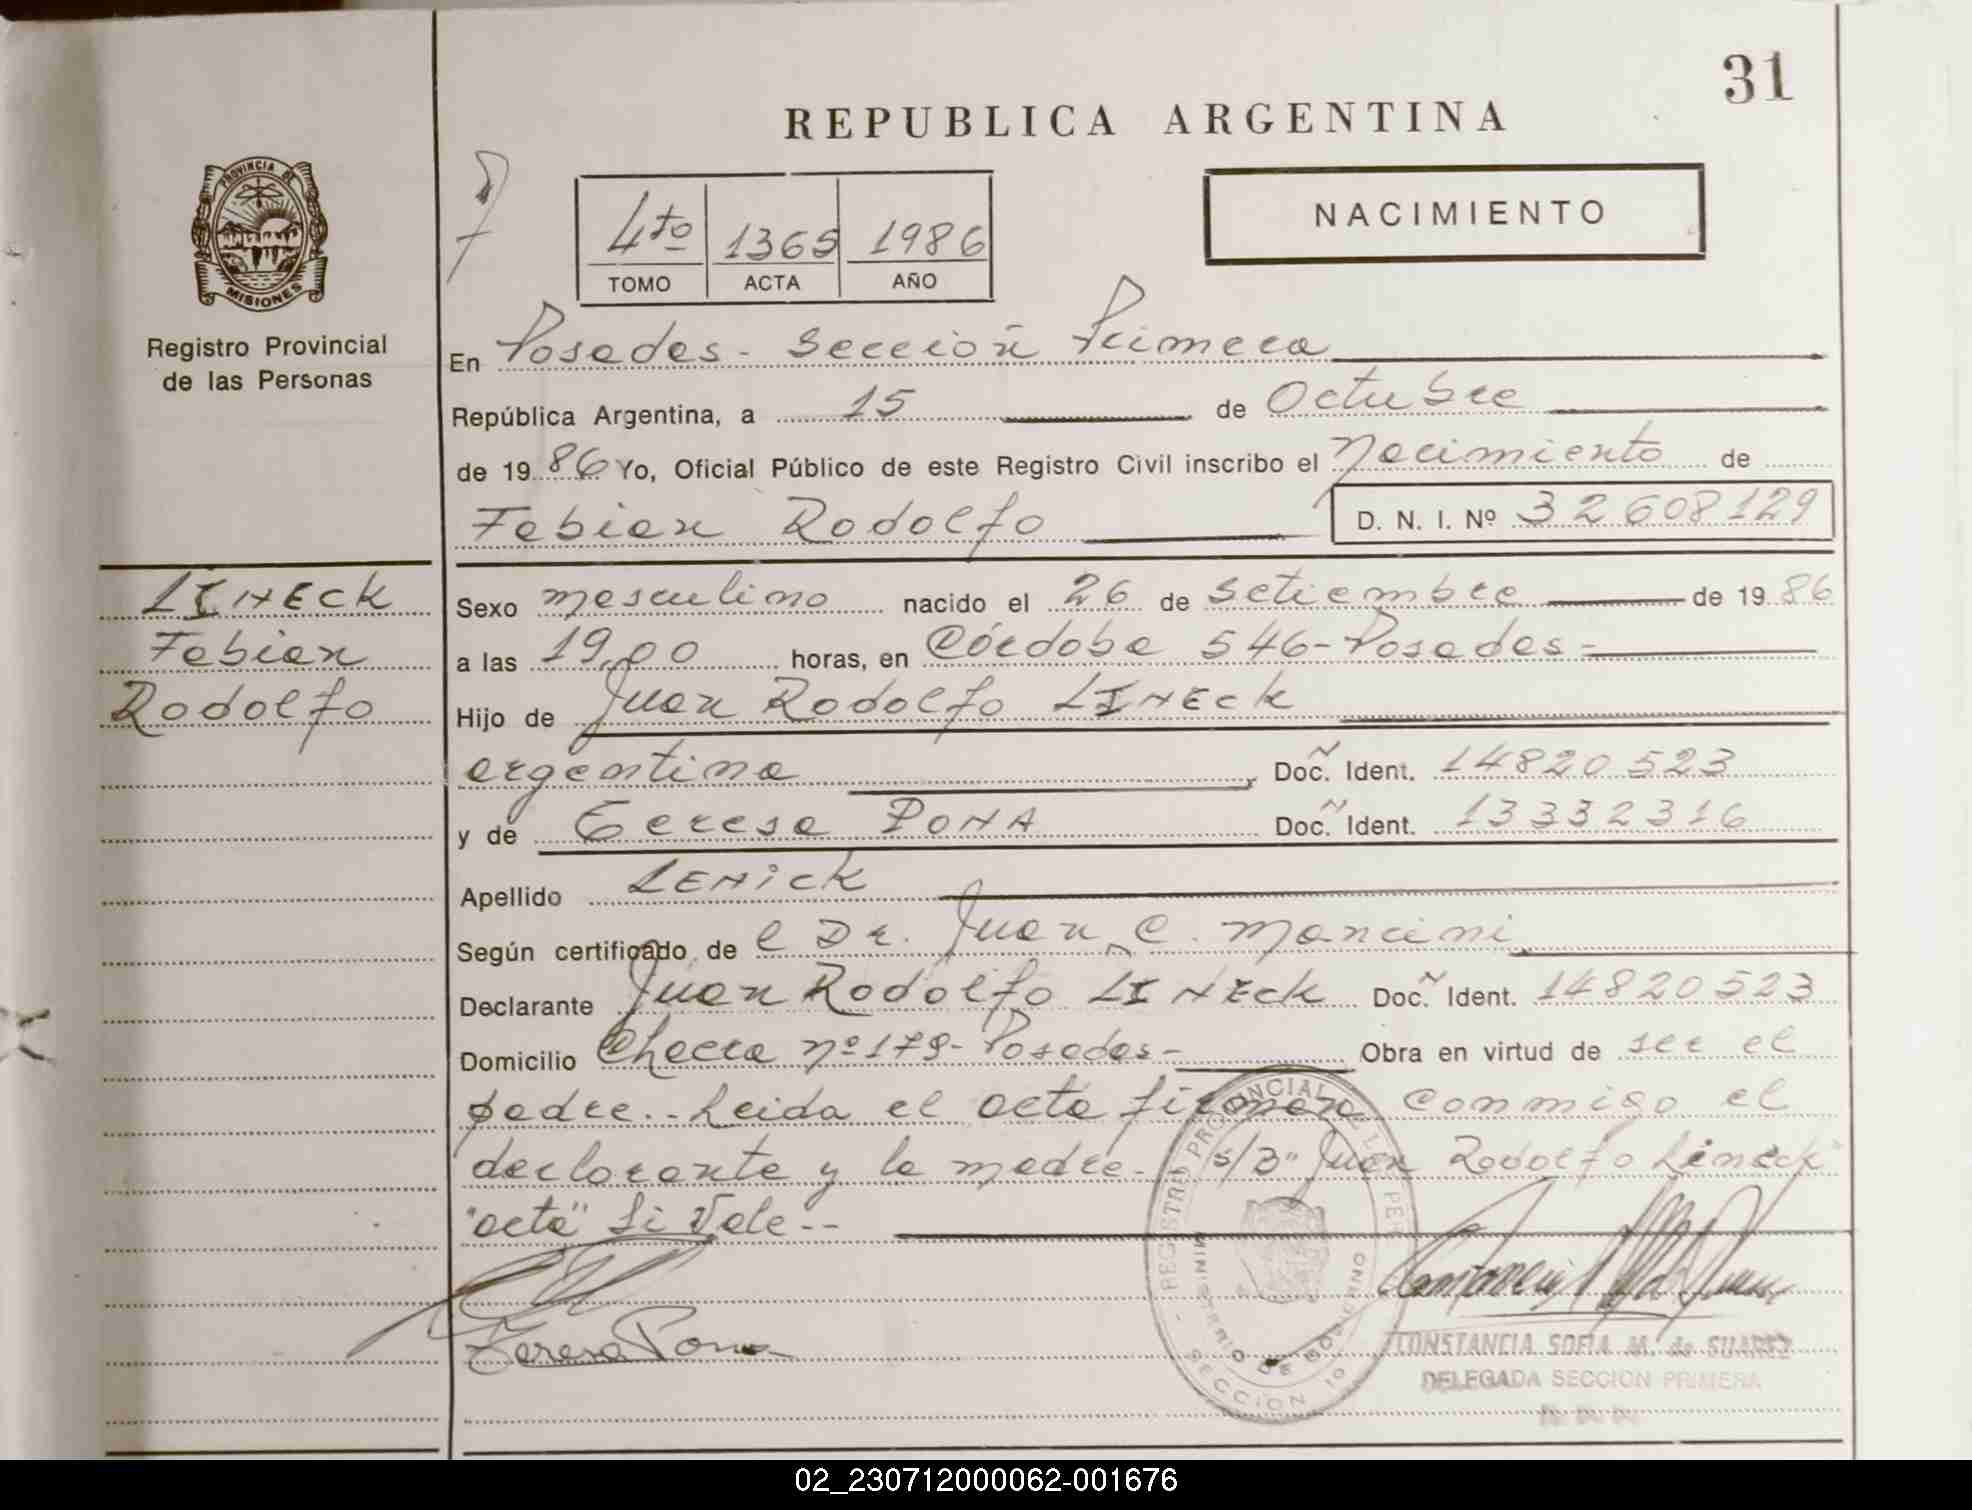 31
REPUBLICA ARGENTINA
PROVINCIA DE
MISIONES
Registro Provincial
de las Personas
4to 1365 1986
TOMO ACTA AÑO
NACIMIENTO
En Posadas - Sección Primera
República Argentina, a 15 de Octubre
de 19 86 Yo, Oficial Público de este Registro Civil inscribo el Nacimiento de
Fabian Rodolfo D. N. I. Nº 32608129
LINECK
Fabian
Rodolfo
Sexo masculino nacido el 26 de Setiembre de 19 86
a las 19,00 horas, en Córdoba 546 - Posadas -
Hijo de Juan Rodolfo LINECK
argentina Doc. Ident. 14820523
y de Teresa PONA Doc. Ident. 13332316
Apellido LENICK
Según certificado de el Dr. Juan C. Mancini
Declarante Juan Rodolfo LINECK Doc. Ident. 14820523
Domicilio Checra nº 179 - Posadas - Obra en virtud de ser el
padre.. Leida el acta firman conmigo el
declarante y la madre. - s/B" Juan Rodolfo Lineck"
"acta" Si Vale --
Teresa Pona
REGISTRO PROVINCIAL DE LAS PER
MINISTERIO DE GOBIERNO
SECCION 10
CONSTANCIA SOFIA M. de SUAREZ
DELEGADA SECCION PRIMERA
02_230712000062-001676